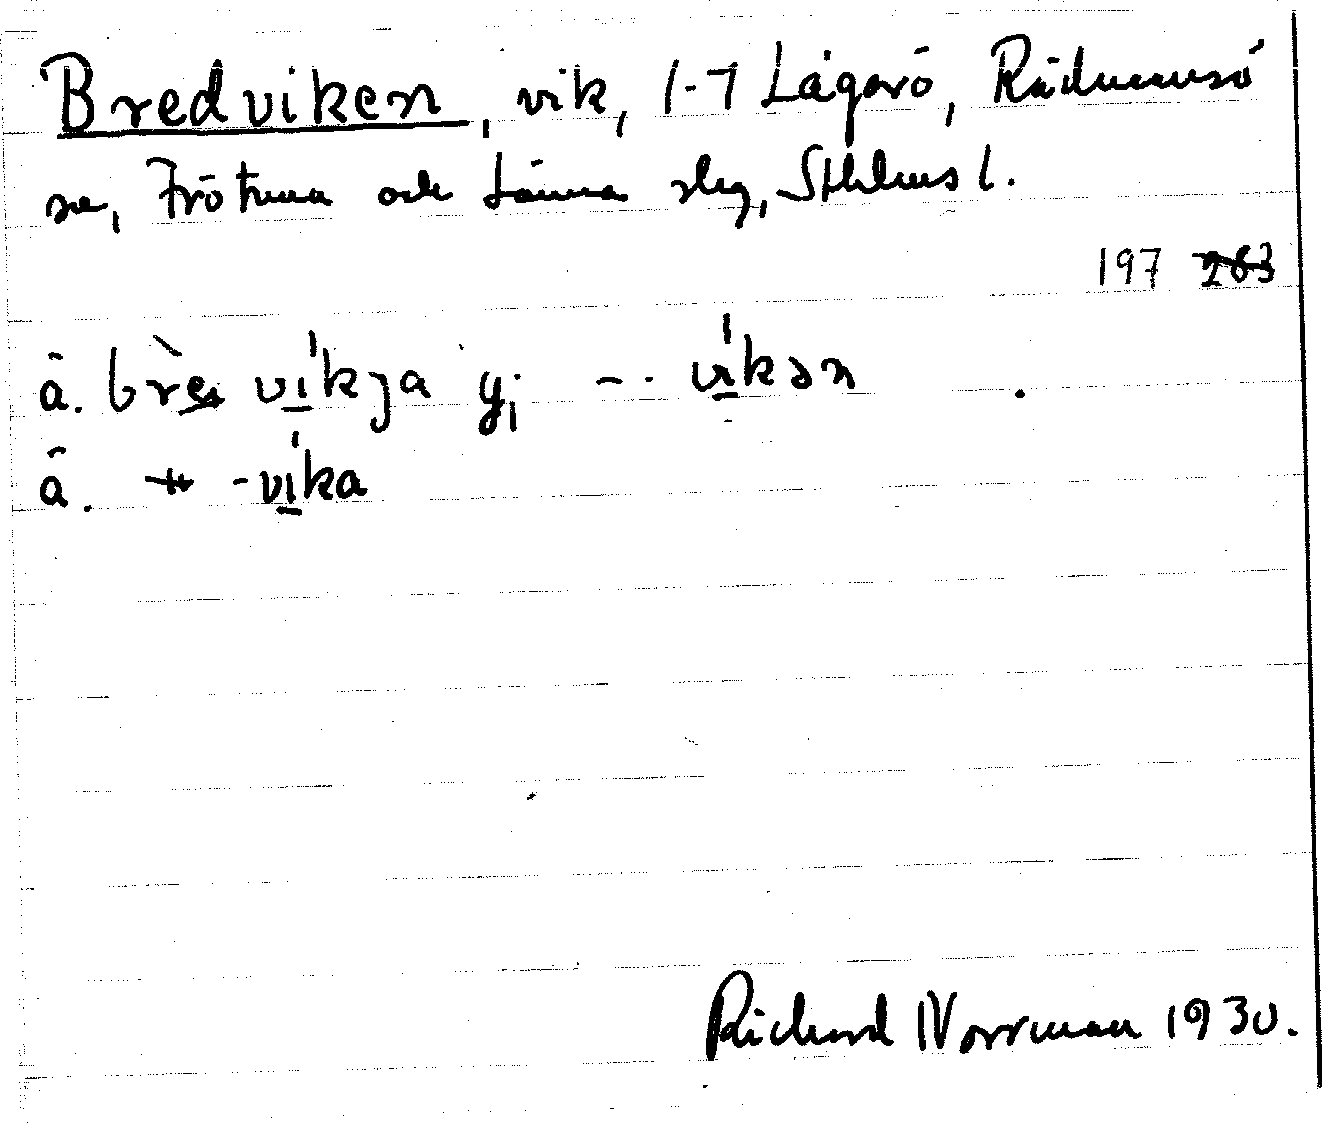 Bredviken, vik, 1-7 Lågarö, Rådmansö
sn, Frötuna och Länna slg, Sthlms l.
197 263
ä. brè víkja y; -- víkən
ä. -víka
Richard Norrman 1930.